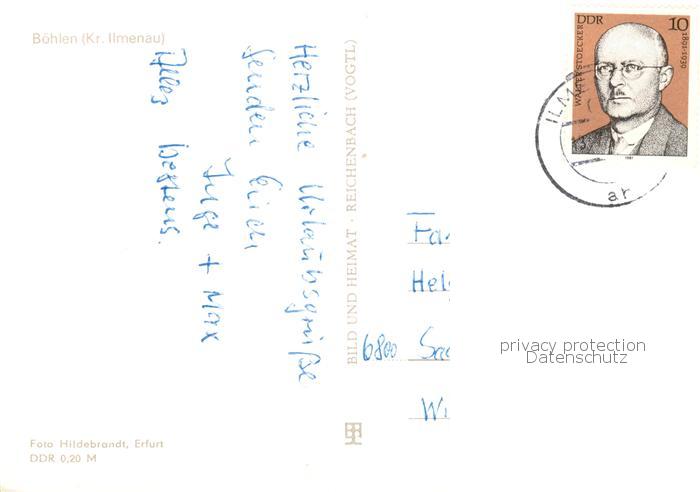 Böhlen (Kr. Ilmenau)
Herzliche Urlaubsgrüße
senden Euch
Inge + Max
Alles bestens.
BILD UND HEIMAT · REICHENBACH (VOGTL)
DDR 10
WALTER STOECKER
1891-1939
1981
ar
Fa
Hel
6800 Saa
Wi
privacy protection
Datenschutz
Foto Hildebrandt, Erfurt
DDR 0,20 M